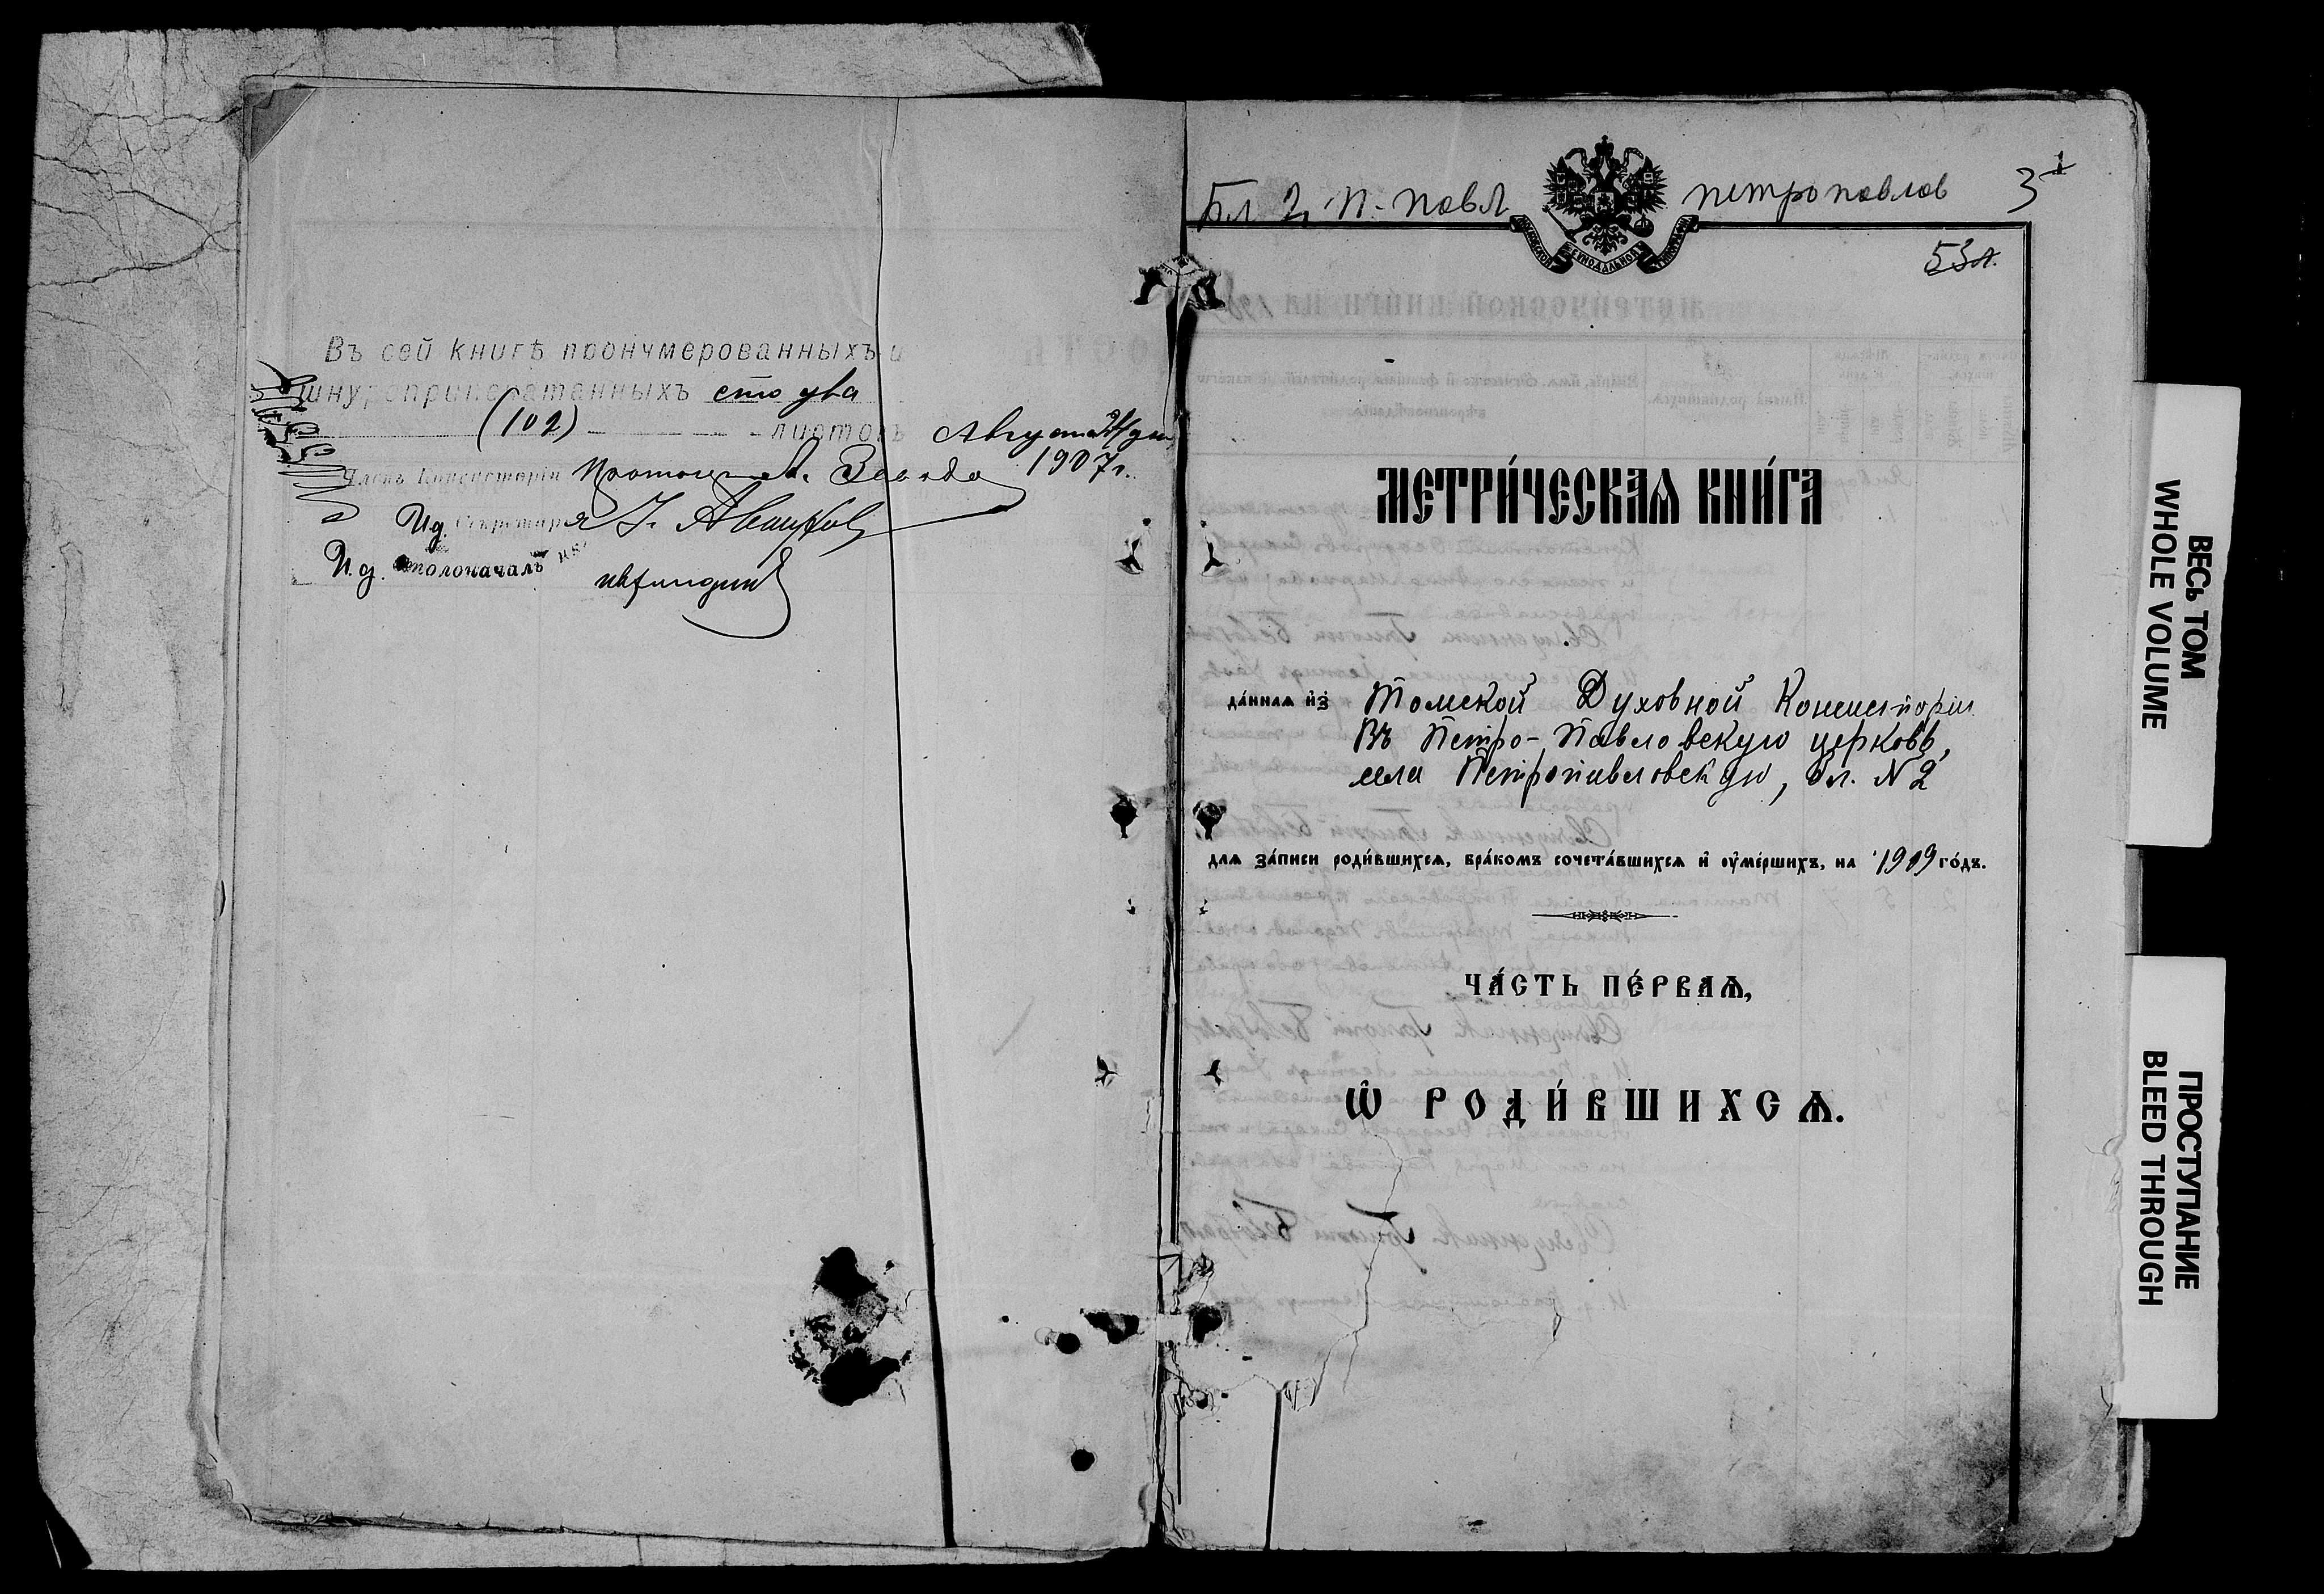 Въ сей книгѣ пронумерованныхъ и
шнуроприпечатанныхъ сто два
(102) листовъ Августа дня
1907 г.
Членъ Консисторіи
И. д. Секретаря
И. д. столоначальника
Бл 2, П.-павл петропавлов 3
МОСКОВСКОЙ СѴНОДАЛЬНОЙ ТИПОГРАФІИ
53 л.
МЕТРИ́ЧЕСКАѦ КНИ́ГА
да́ннаѧ и҆з̾ Томской Духовной Консисторіи
Въ Петро-Павловскую церковь,
села Петропавловскаго, бл. N 2
длѧ за́писи роди́вшихсѧ, бра́комъ сочета́вшихсѧ и҆ оу҆ме́ршихъ, на 1909 го́дъ.
ЧА́СТЬ ПЕ́РВАѦ,
Ѽ РОДИ́ВШИХСѦ.
ВЕСЬ ТОМ
WHOLE VOLUME
ПРОСТУПАНИЕ
BLEED THROUGH